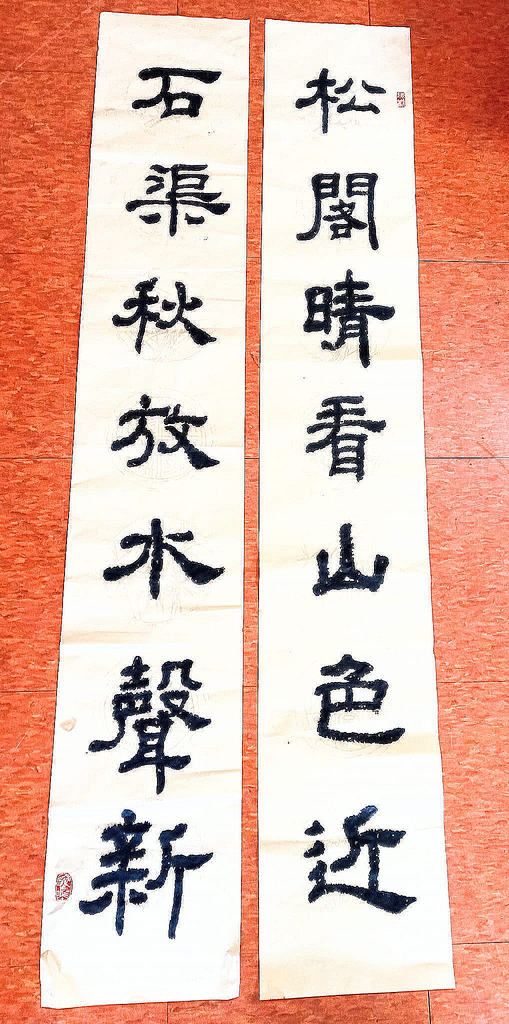 松閣晴看山色近
石渠秋放水聲新